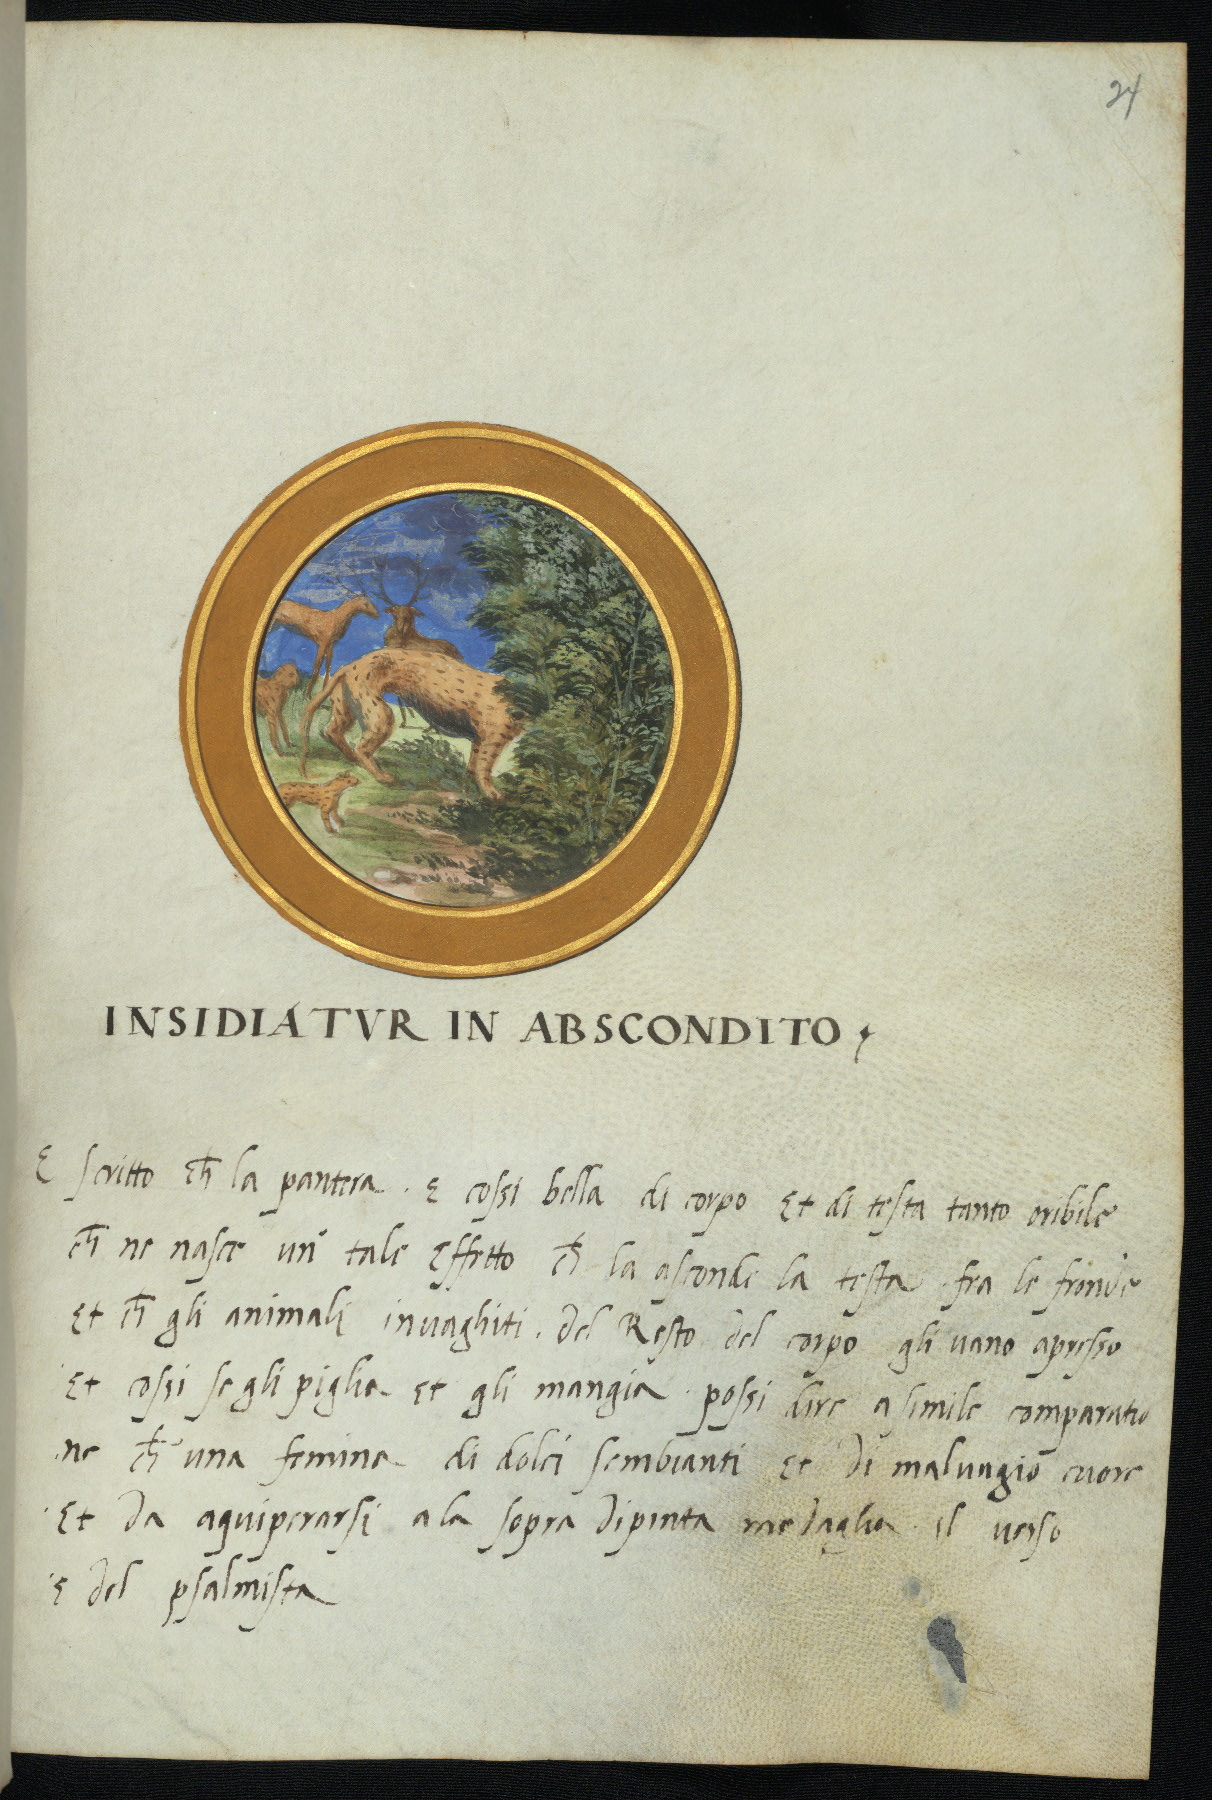 24
INSIDIATVR IN ABSCONDITO,
E scritto ch̄ la pantera . e cossi bella di corpo et di testa tanto oribile
ch̄ ne nasce un' tale effetto ch̄ la asconde la testa . fra le fronde
et ch̄ gli animali invaghiti . del Resto del corpo gli vano apresso
et cossi se gli piglia et gli mangia . possi dire a simile comparatio
ne ch̄ una femina di dolci sembianti et di malvagio cuore
Et da aquiperarsi a la sopra dipinta medaglia . il verso
e del psalmista